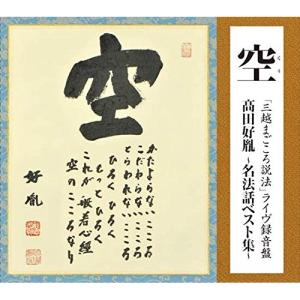 空
くう
「三越まごころ説法」ライヴ録音盤
高田好胤
~名法話ベスト集~
空
かたよらないこころ
こだわらないこころ
とらわれないこころ
ひろくひろく
もっとひろく
これが般若心経
空のこころなり
好胤